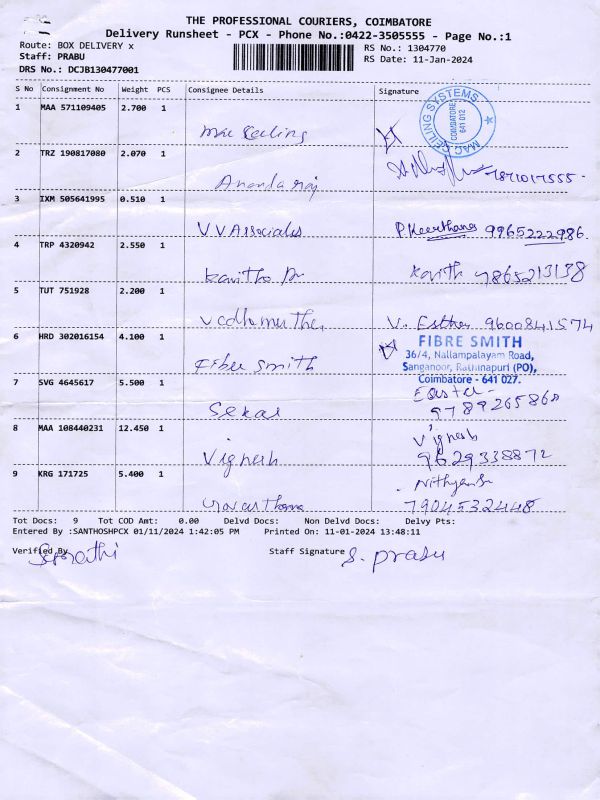 THE PROFESSIONAL COURIERS, COIMBATORE
Delivery Runsheet - PCX - Phone No.:0422-3505555 - Page No.:1
Route: BOX DELIVERY x
RS No.: 1304770
Staff: PRABU
RS Date: 11-Jan-2024
DRS No.: DCJB130477001
S No Consignment No Weight PCS Consignee Details Signature
1 MAA 571109405 2.700 1
Mac Ceiling
MAC CEILING SYSTEMS
COIMBATORE
641 012
2 TRZ 190817080 2.070 1
Anandaraj
7871017555
3 IXM 505641995 0.510 1
V V Associates P.Keerthana 9965222986
4 TRP 4320942 2.550 1
Kavitha Kavith 9865213138
5 TUT 751928 2.200 1
V. Esther 9600841574
6 HRD 302016154 4.100 1
Fiber smith
FIBRE SMITH
36/4, Nallampalayam Road,
Sanganoor, Rathinapuri (PO),
Coimbatore - 641 027.
7 SVG 4645617 5.500 1
Sekar
9789265868
8 MAA 108440231 12.450 1
Vignesh
Vignesh
9629338872
9 KRG 171725 5.400 1
7904532448
Tot Docs: 9 Tot COD Amt: 0.00 Delvd Docs: Non Delvd Docs: Delvy Pts:
Entered By :SANTHOSHPCX 01/11/2024 1:42:05 PM Printed On: 11-01-2024 13:48:11
Verified By
Staff Signature
S. Prabu